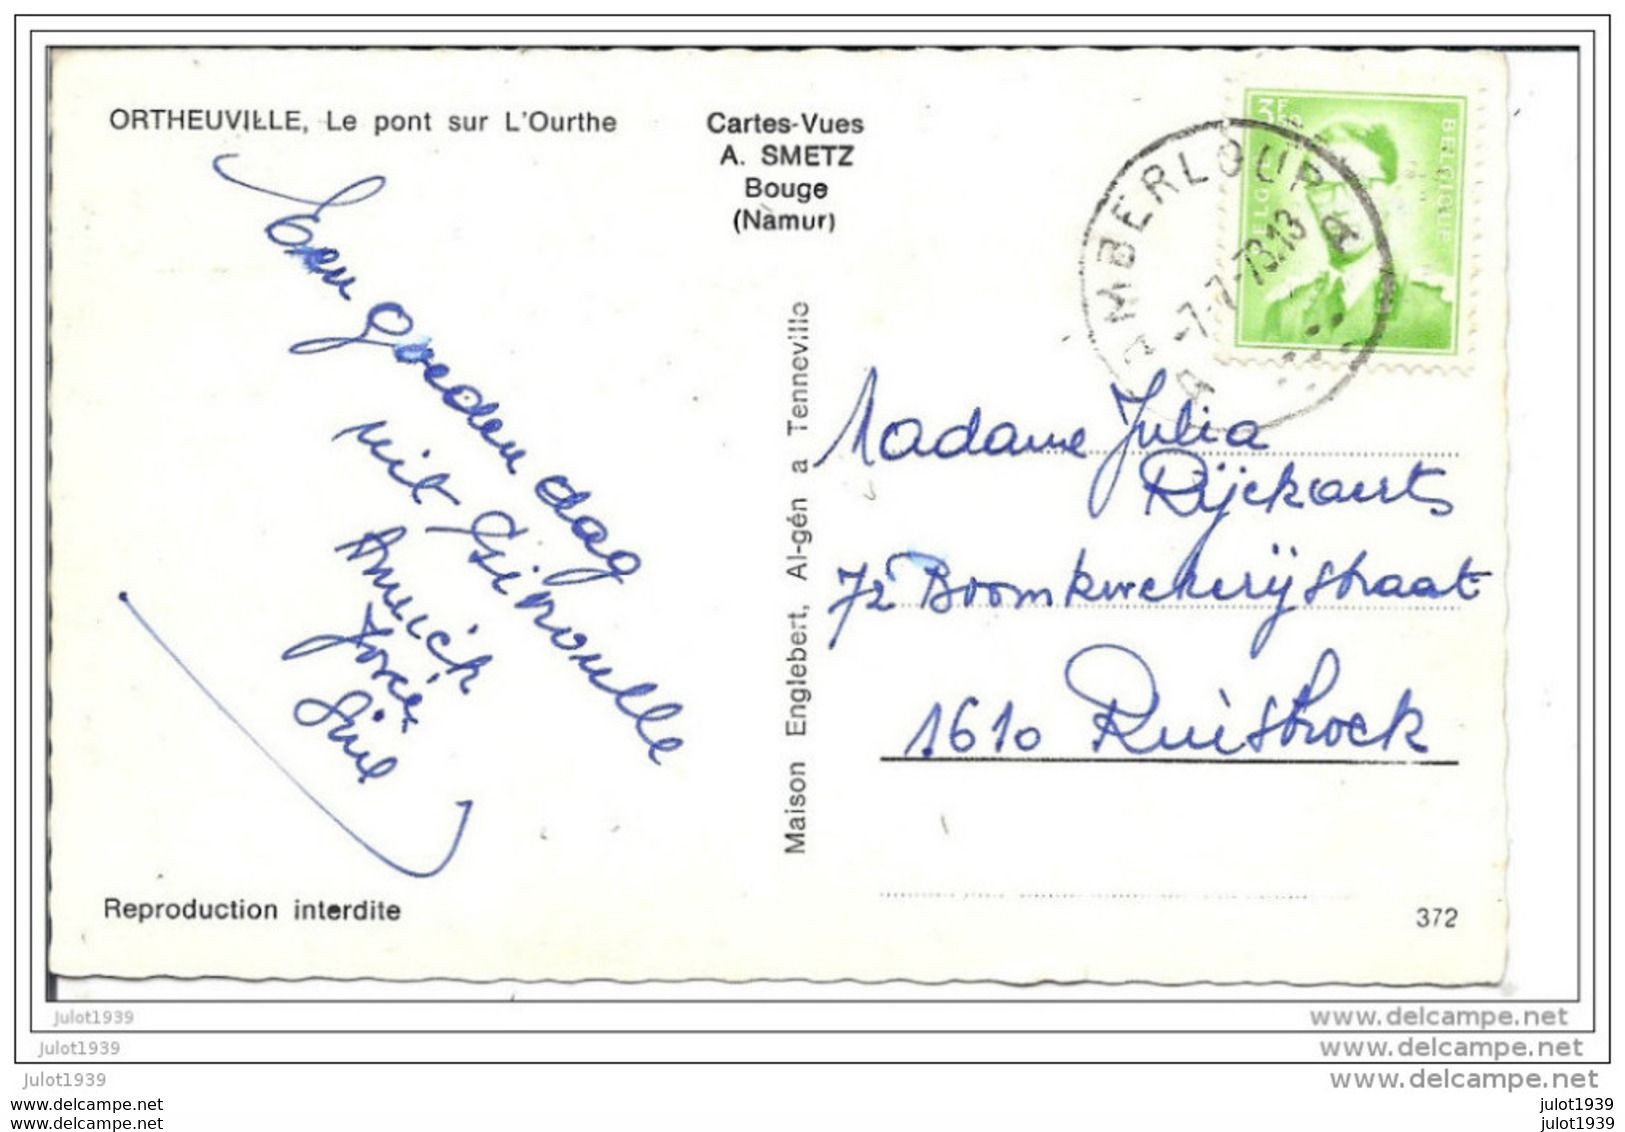 ORTHEUVILLE, Le pont sur L'Ourthe
Cartes-Vues
A. SMETZ
Bouge
(Namur)
Een goeden dag
uit Prelle
José
Maison Englebert, Al-gén a Tenneville
3F50
BELGIQUE
AMBERLOUP
-7-7-73.13
Madame Julia
Rijckaerts
72 Boomkwekerijstraat
1610 Ruisbroek
Reproduction interdite
372
Julot1939
www.delcampe.net
Julot1939
www.delcampe.net
Julot1939
www.delcampe.net
www.delcampe.com
julot1939
www.delcampe.com
julot1939